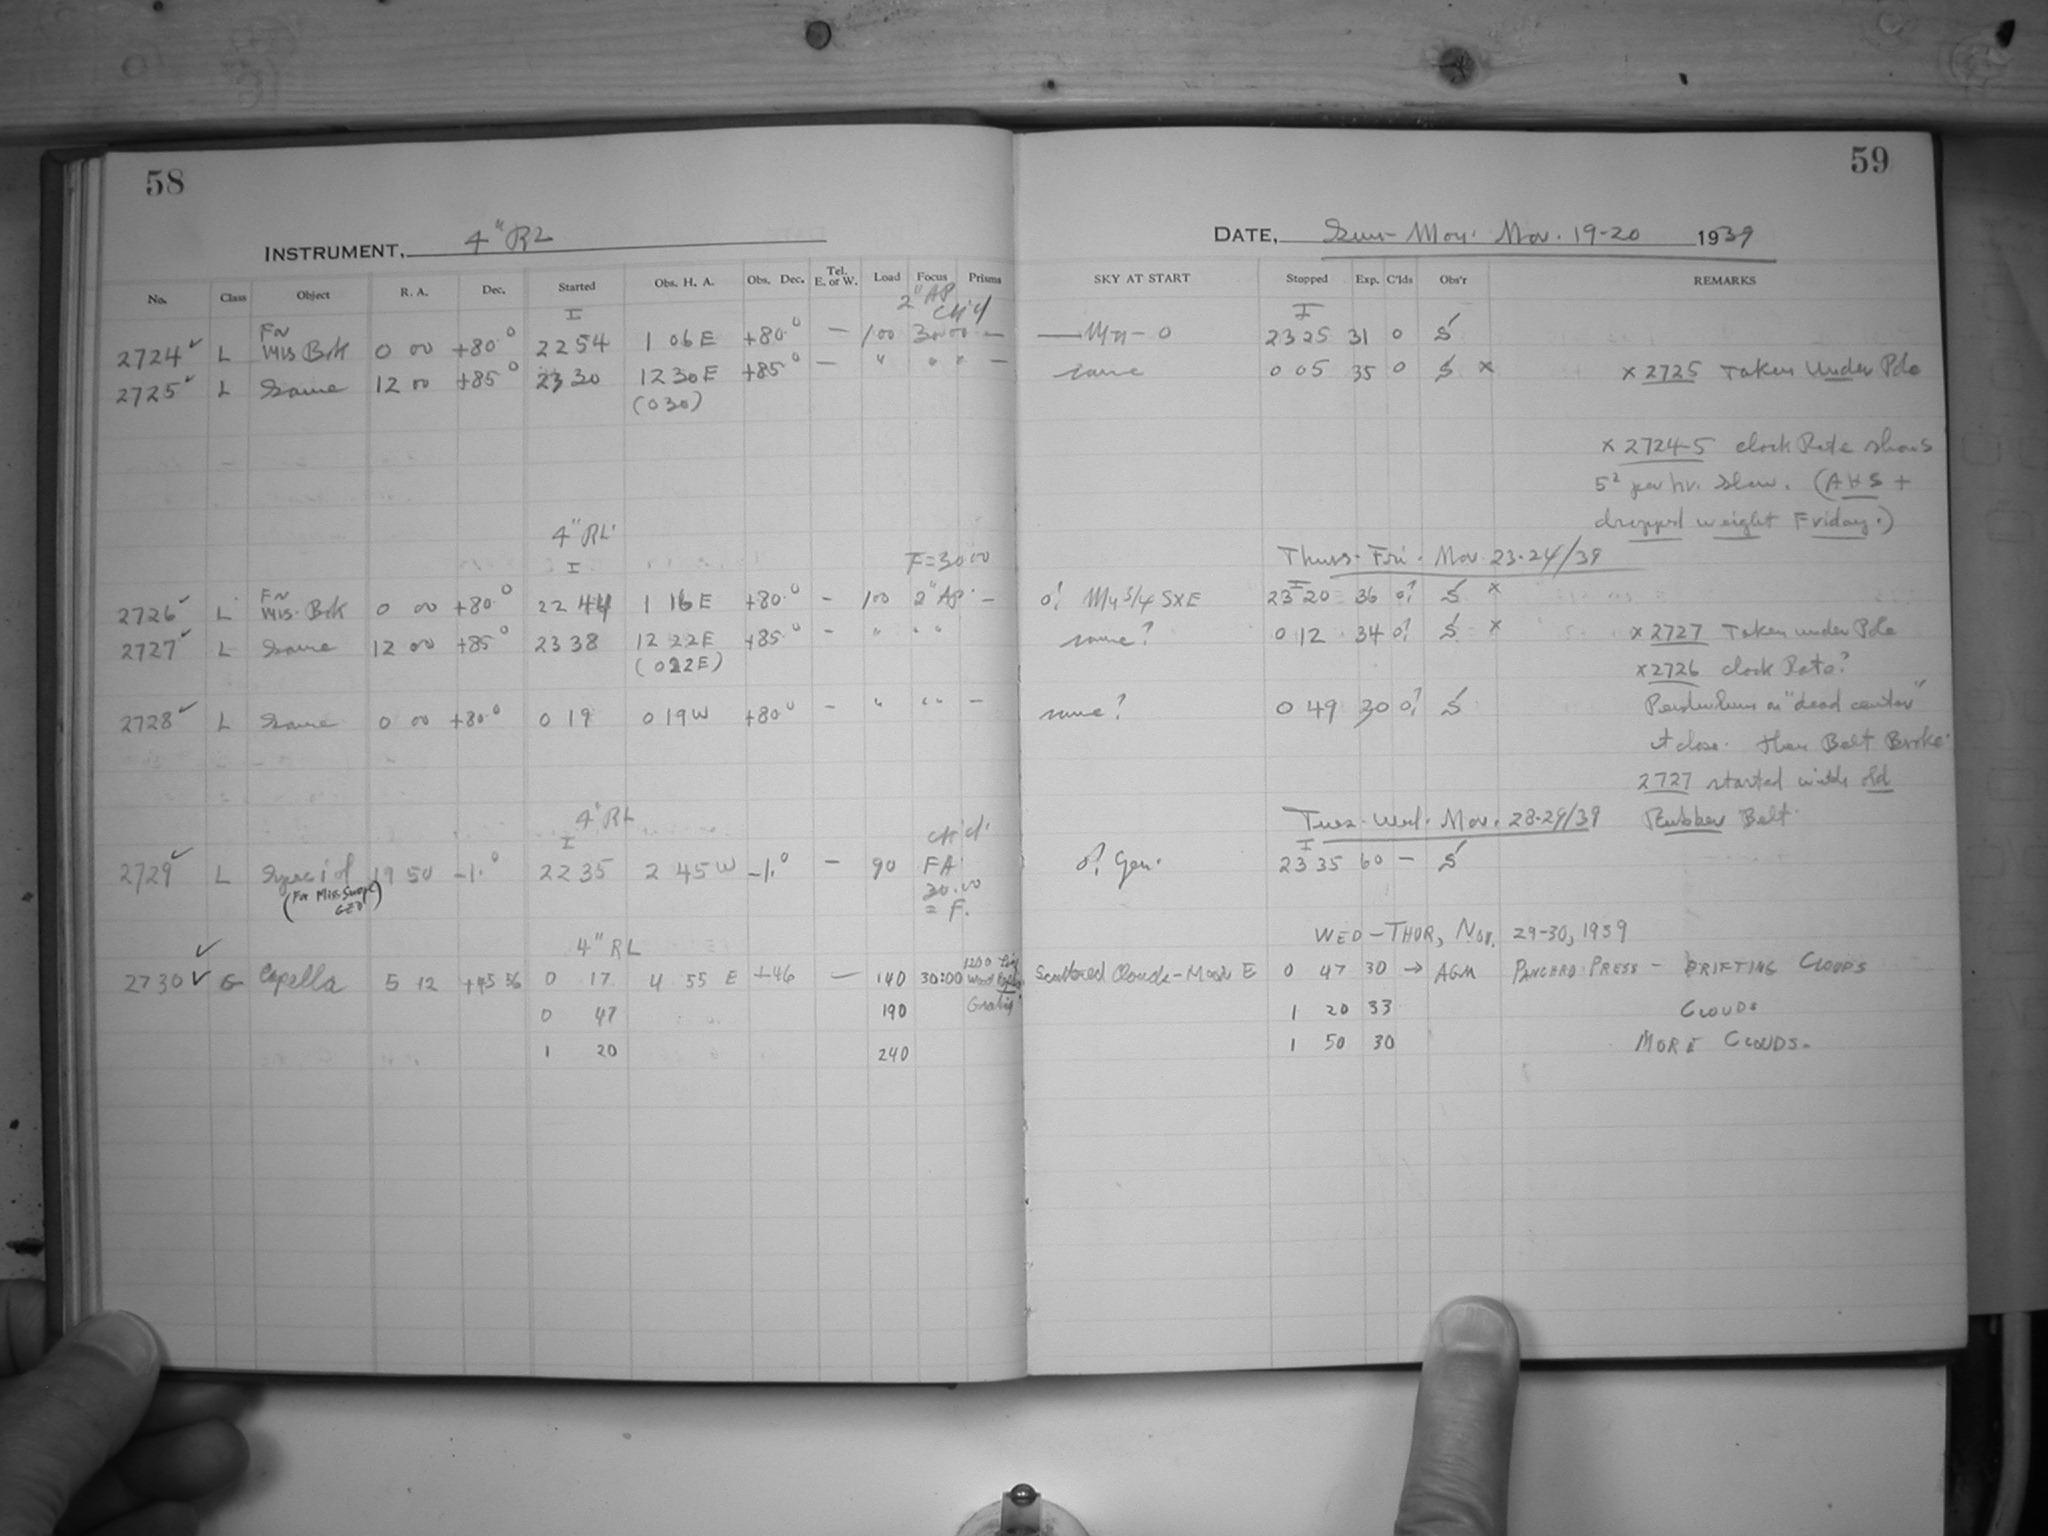 58
INSTRUMENT, 4" RL
No. Class Object R. A. Dec. Started Obs. H. A. Obs. Dec. Tel. E. or W. Load Focus Prisms
I 2" AP ck'd
2724 ✓ L For Mis Brk 0 00 +80.° 22 54 1 06 E +80.° — 100 30.00 —
2725 ✓ L Same 12 00 +85° 23 30 12 30 E +85° — " " " —
(0 30)
4" RL
I F=30.00
2726 ✓ L For Mis. Brk 0 00 +80.° 22 44 1 16 E +80.° - 100 2" AP. -
2727 ✓ L Same 12 00 +85° 23 38 12 22 E +85.° - " " "
(0 22 E)
2728 ✓ L Same 0 00 +80.° 0 19 0 19 W +80° - " " " -
4" RL ck'd.
I
2729 ✓ L Special 19 50 -1.° 22 35 2 45 W -1.° — 90 FA
(For Miss Swope 30.00
= F.
✓ 4" RL
2730 ✓ G Capella 5 12 +45 56 0 17 4 55 E +46 — 140 30:00 1200 Line Wood
0 47 190 Grating
1 20 240
59
DATE, Sun- Mon. Nov. 19-20 1939
SKY AT START Stopped Exp. C'lds Obs'r REMARKS
I
— 0 23 25 31 0 S
same 0 05 35 0 S x x 2725 Taken Under Pole
x 2724-5 clock Rate shows
per hr. slow. (AHS +
dropped weight Friday.)
Thurs- Fri. Nov. 23-24/39
I
0? S X E 23 20 36 0? S x
same? 0 12 34 0? S x x 2727 Taken under Pole
x 2726 clock Rate?
same? 0 49 30 0? S Pendulum on "dead center"
at close. then Belt Broke.
2727 started with old
Tues- Wed. Nov. 28-29/39 Rubber Belt.
I
0? Gen. 23 35 60 — S
WED-THUR, NOV. 29-30, 1939
Scattered Clouds - Moon E 0 47 30 → AGM PANCHRO PRESS - DRIFTING CLOUDS
1 20 33 CLOUDS
1 50 30 MORE CLOUDS.